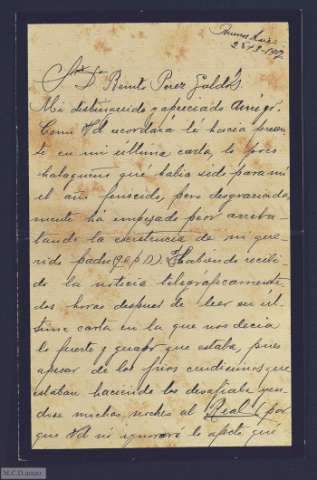 Buenos Aires
25/2-907
Sr. D. Benito Perez Galdós
Mi distinguido y apreciado Amigo:
Como Vd recordará le hacia presen
te en mi última carta, lo poco
halagueño que habia sido para mi
el año fenecido, pero desgraciada
mente ha empezado peor arreba
tando la existencia de mi que
rido padre (q e p d) Habiendo recibi
do la noticia telegráficamente
dos horas despues de leer su úl
tima carta en la que nos decia
lo fuerte y guapo que estaba, pues
apesar de los frios crudisimos que
estaban haciendo los desafiaba yen
dose muchas noches al Real (por
que Vd no ignorará lo afecto que
M.C.D. 2020